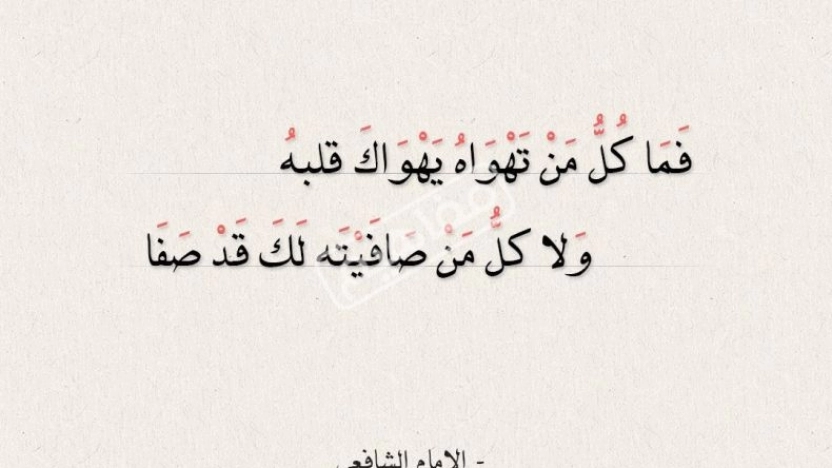 فَمَا كُلُّ مَنْ تَهْوَاهُ يَهْوَاكَ قلبهُ
وَلا كلُّ مَنْ صَافَيْتَه لَكَ قَدْ صَفَا
- الإمام الشافعي